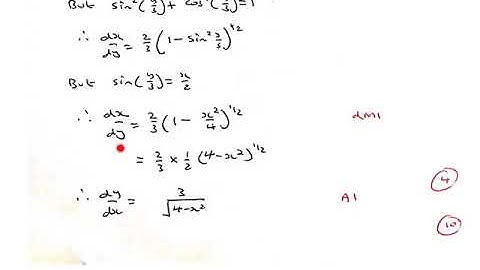 But sin²(y/3) + cos²(y/3) = 1
∴ dx/dy = 2/3 (1 - sin² y/3)^1/2
But sin(y/3) = x/2
∴ dx/dy = 2/3 (1 - x²/4)^1/2 dM1
= 2/3 × 1/2 (4-x²)^1/2
4
∴ dy/dx = 3/√(4-x²) A1
10